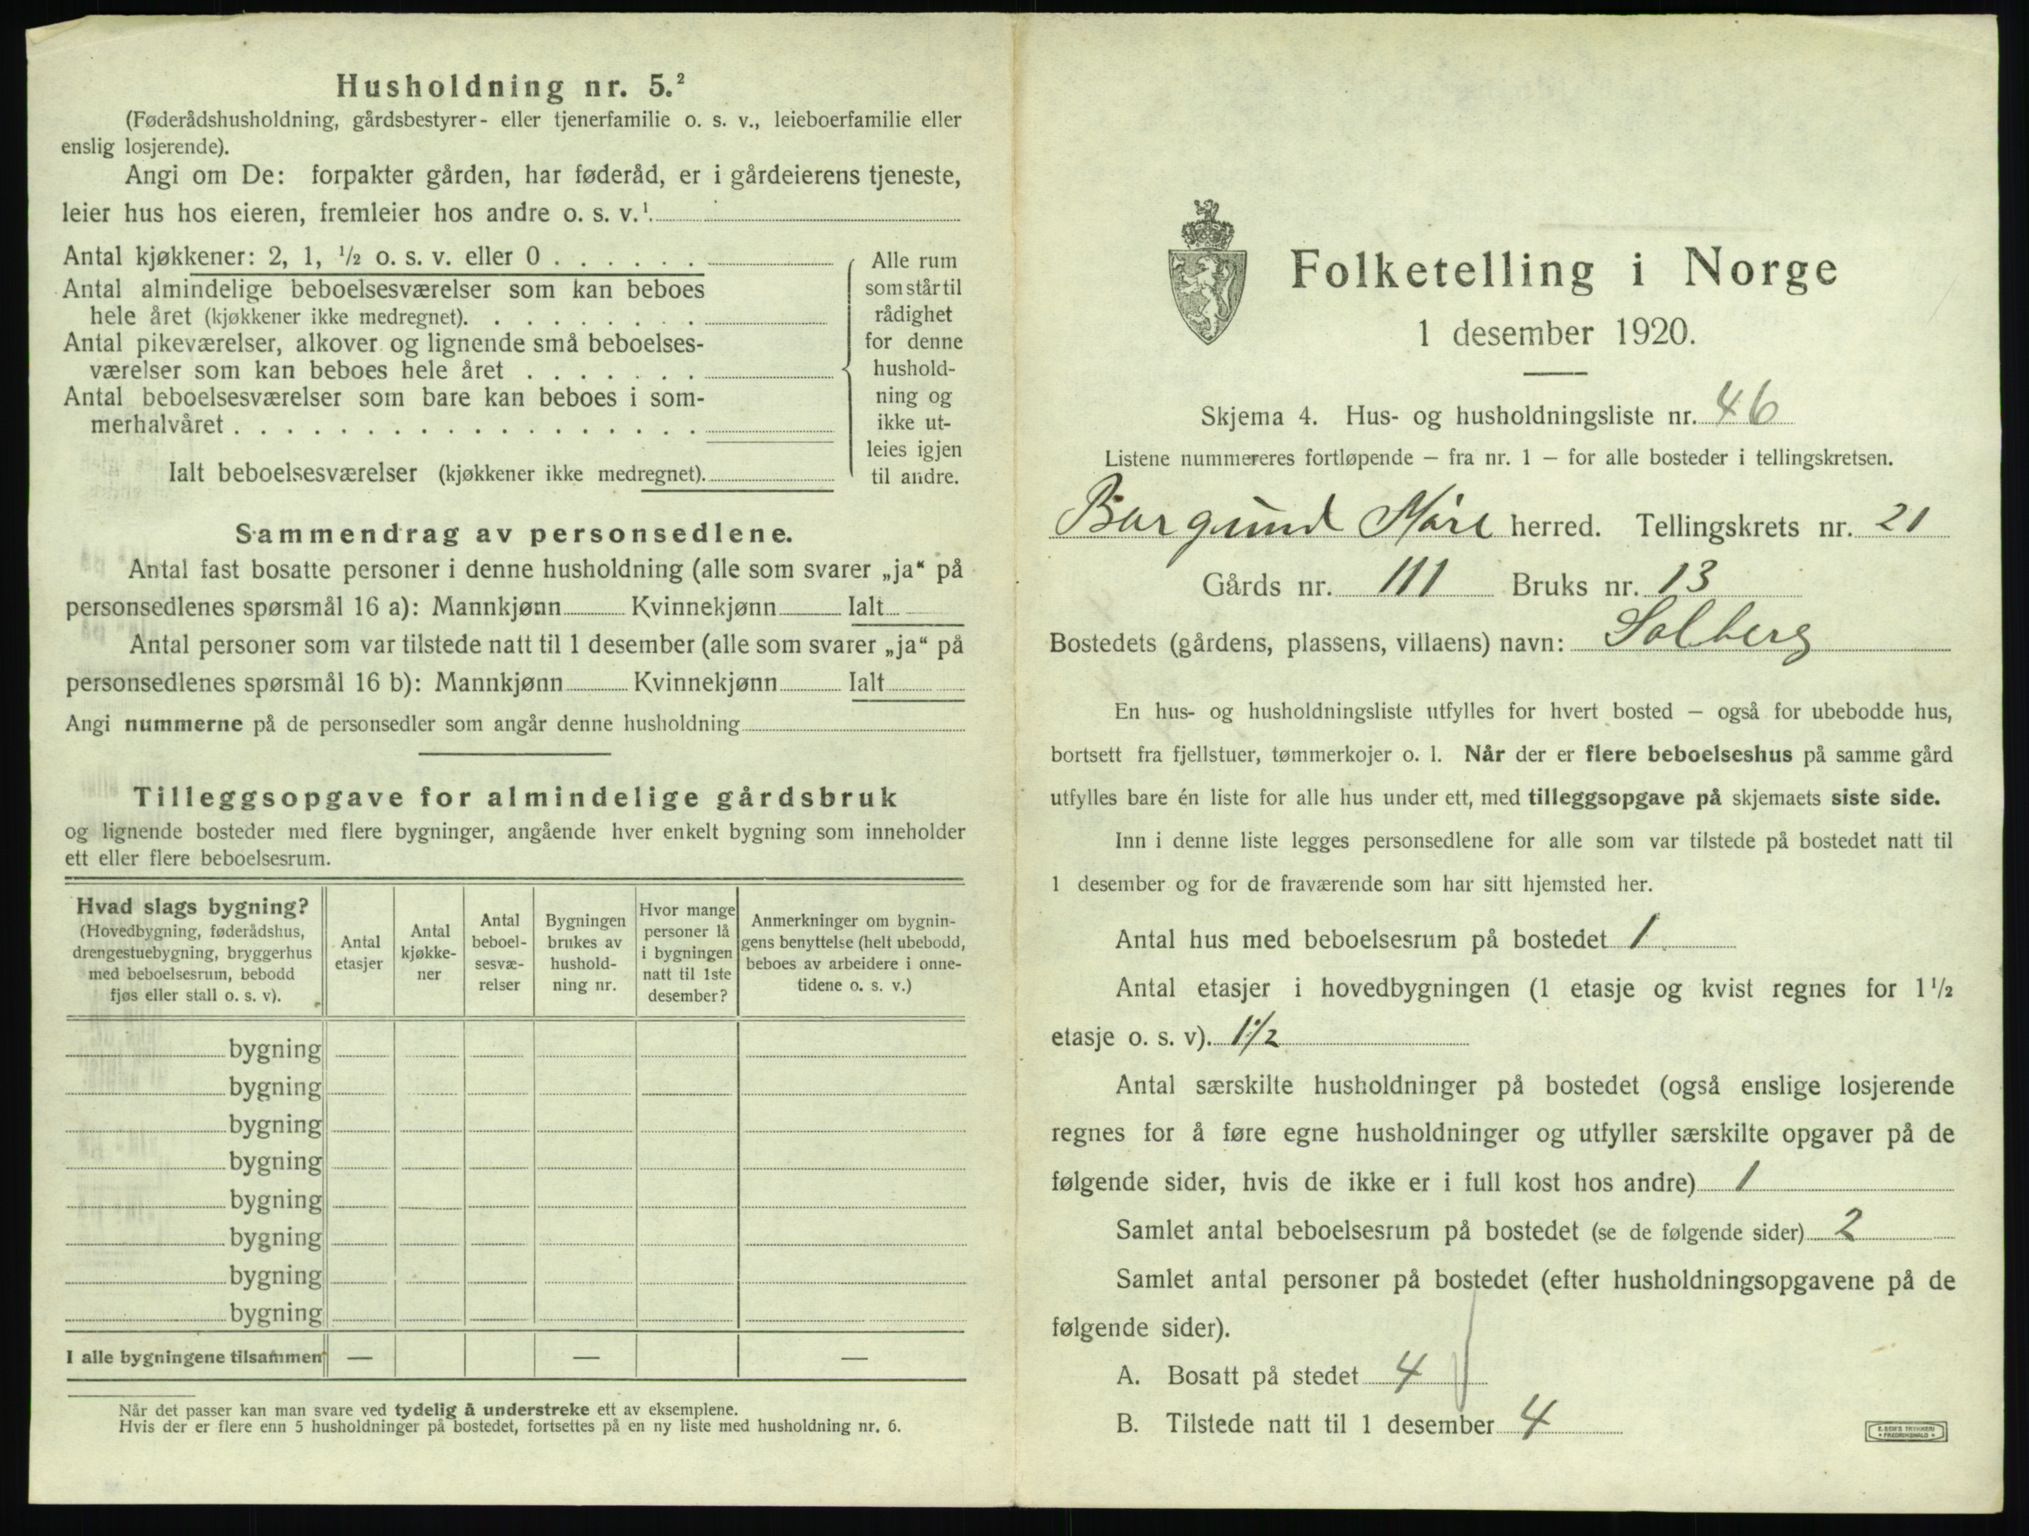 Husholdning nr. 5.²
(Føderådshusholdning, gårdsbestyrer- eller tjenerfamilie o. s. v., leieboerfamilie eller
enslig losjerende).
Angi om De: forpakter gården, har føderåd, er i gårdeierens tjeneste,
leier hus hos eieren, fremleier hos andre o. s. v.¹
Antal kjøkkener: 2, 1, ½ o. s. v. eller 0 . . . . . .
Antal almindelige beboelsesværelser som kan beboes
hele året (kjøkkener ikke medregnet). . . . . . . . .
Antal pikeværelser, alkover og lignende små beboelses-
værelser som kan beboes hele året . . . . . . .
Antal beboelsesværelser som bare kan beboes i som-
merhalvåret . . . . . . . . . . . . . . . . . .
Ialt beboelsesværelser (kjøkkener ikke medregnet).
Alle rum
som står til
rådighet
for denne
hushold-
ning og
ikke ut-
leies igjen
til andre.
Sammendrag av personsedlene.
Antal fast bosatte personer i denne husholdning (alle som svarer „ja“ på
personsedlenes spørsmål 16 a): Mannkjønn Kvinnekjønn Ialt
Antal personer som var tilstede natt til 1 desember (alle som svarer „ja“ på
personsedlenes spørsmål 16 b): Mannkjønn Kvinnekjønn Ialt
Angi nummerne på de personsedler som angår denne husholdning
Tilleggsopgave for almindelige gårdsbruk
og lignende bosteder med flere bygninger, angående hver enkelt bygning som inneholder
ett eller flere beboelsesrum.
Hvad slags bygning?
(Hovedbygning, føderådshus,
drengestuebygning, bryggerhus
med beboelsesrum, bebodd
fjøs eller stall o. s. v).
Antal
etasjer
Antal
kjøkke-
ner
Antal
beboel-
sesvæ-
relser
Bygningen
brukes av
hushold-
ning nr.
Hvor mange
personer lå
i bygningen
natt til 1ste
desember?
Anmerkninger om bygnin-
gens benyttelse (helt ubebodd,
beboes av arbeidere i onne-
tidene o. s. v.)
bygning
bygning
bygning
bygning
bygning
bygning
bygning
bygning
I alle bygningene tilsammen — — —
Når det passer kan man svare ved tydelig å understreke ett av eksemplene.
Hvis der er flere enn 5 husholdninger på bostedet, fortsettes på en ny liste med husholdning nr. 6.
Folketelling i Norge
1 desember 1920.
Skjema 4. Hus- og husholdningsliste nr. 46
Listene nummereres fortløpende – fra nr. 1 – for alle bosteder i tellingskretsen.
Borgund Møre herred. Tellingskrets nr. 21
Gårds nr. 111 Bruks nr. 13
Bostedets (gårdens, plassens, villaens) navn: Solberg
En hus- og husholdningsliste utfylles for hvert bosted – også for ubebodde hus,
bortsett fra fjellstuer, tømmerkojer o. l. Når der er flere beboelseshus på samme gård
utfylles bare én liste for alle hus under ett, med tilleggsopgave på skjemaets siste side.
Inn i denne liste legges personsedlene for alle som var tilstede på bostedet natt til
1 desember og for de fraværende som har sitt hjemsted her.
Antal hus med beboelsesrum på bostedet 1
Antal etasjer i hovedbygningen (1 etasje og kvist regnes for 1½
etasje o. s. v). 1½
Antal særskilte husholdninger på bostedet (også enslige losjerende
regnes for å føre egne husholdninger og utfyller særskilte opgaver på de
følgende sider, hvis de ikke er i full kost hos andre) 1
Samlet antal beboelsesrum på bostedet (se de følgende sider) 2
Samlet antal personer på bostedet (efter husholdningsopgavene på de
følgende sider).
A. Bosatt på stedet 4
B. Tilstede natt til 1 desember 4
E. SEM'S TRYKKERI
FREDRIKSHALD